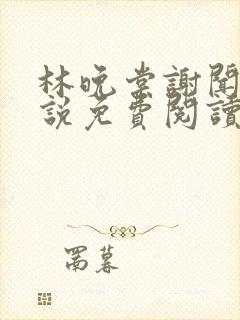 林晚棠謝聞
說免費閱讀
罱暮